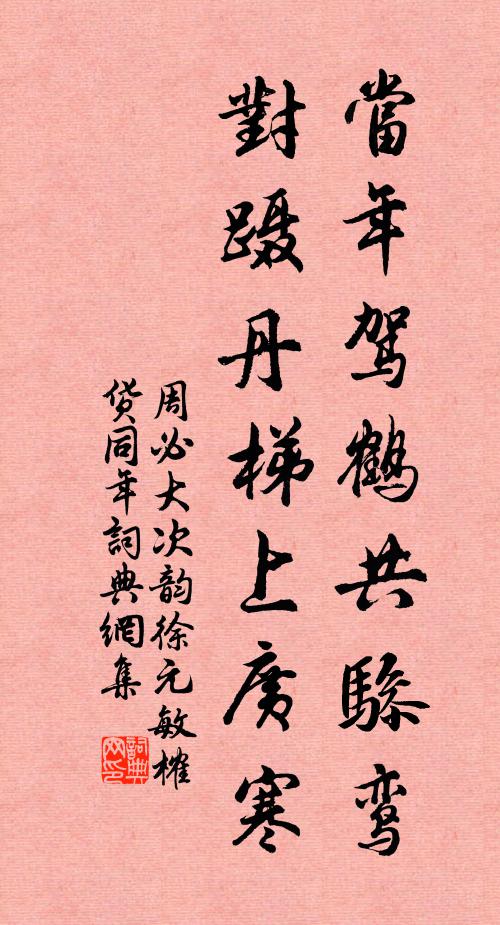 當年驾鶴共驂鸾
對蹑丹梯上廣寒
周必大次韵徐元敏榷
货同年詞典網集
詞典网印